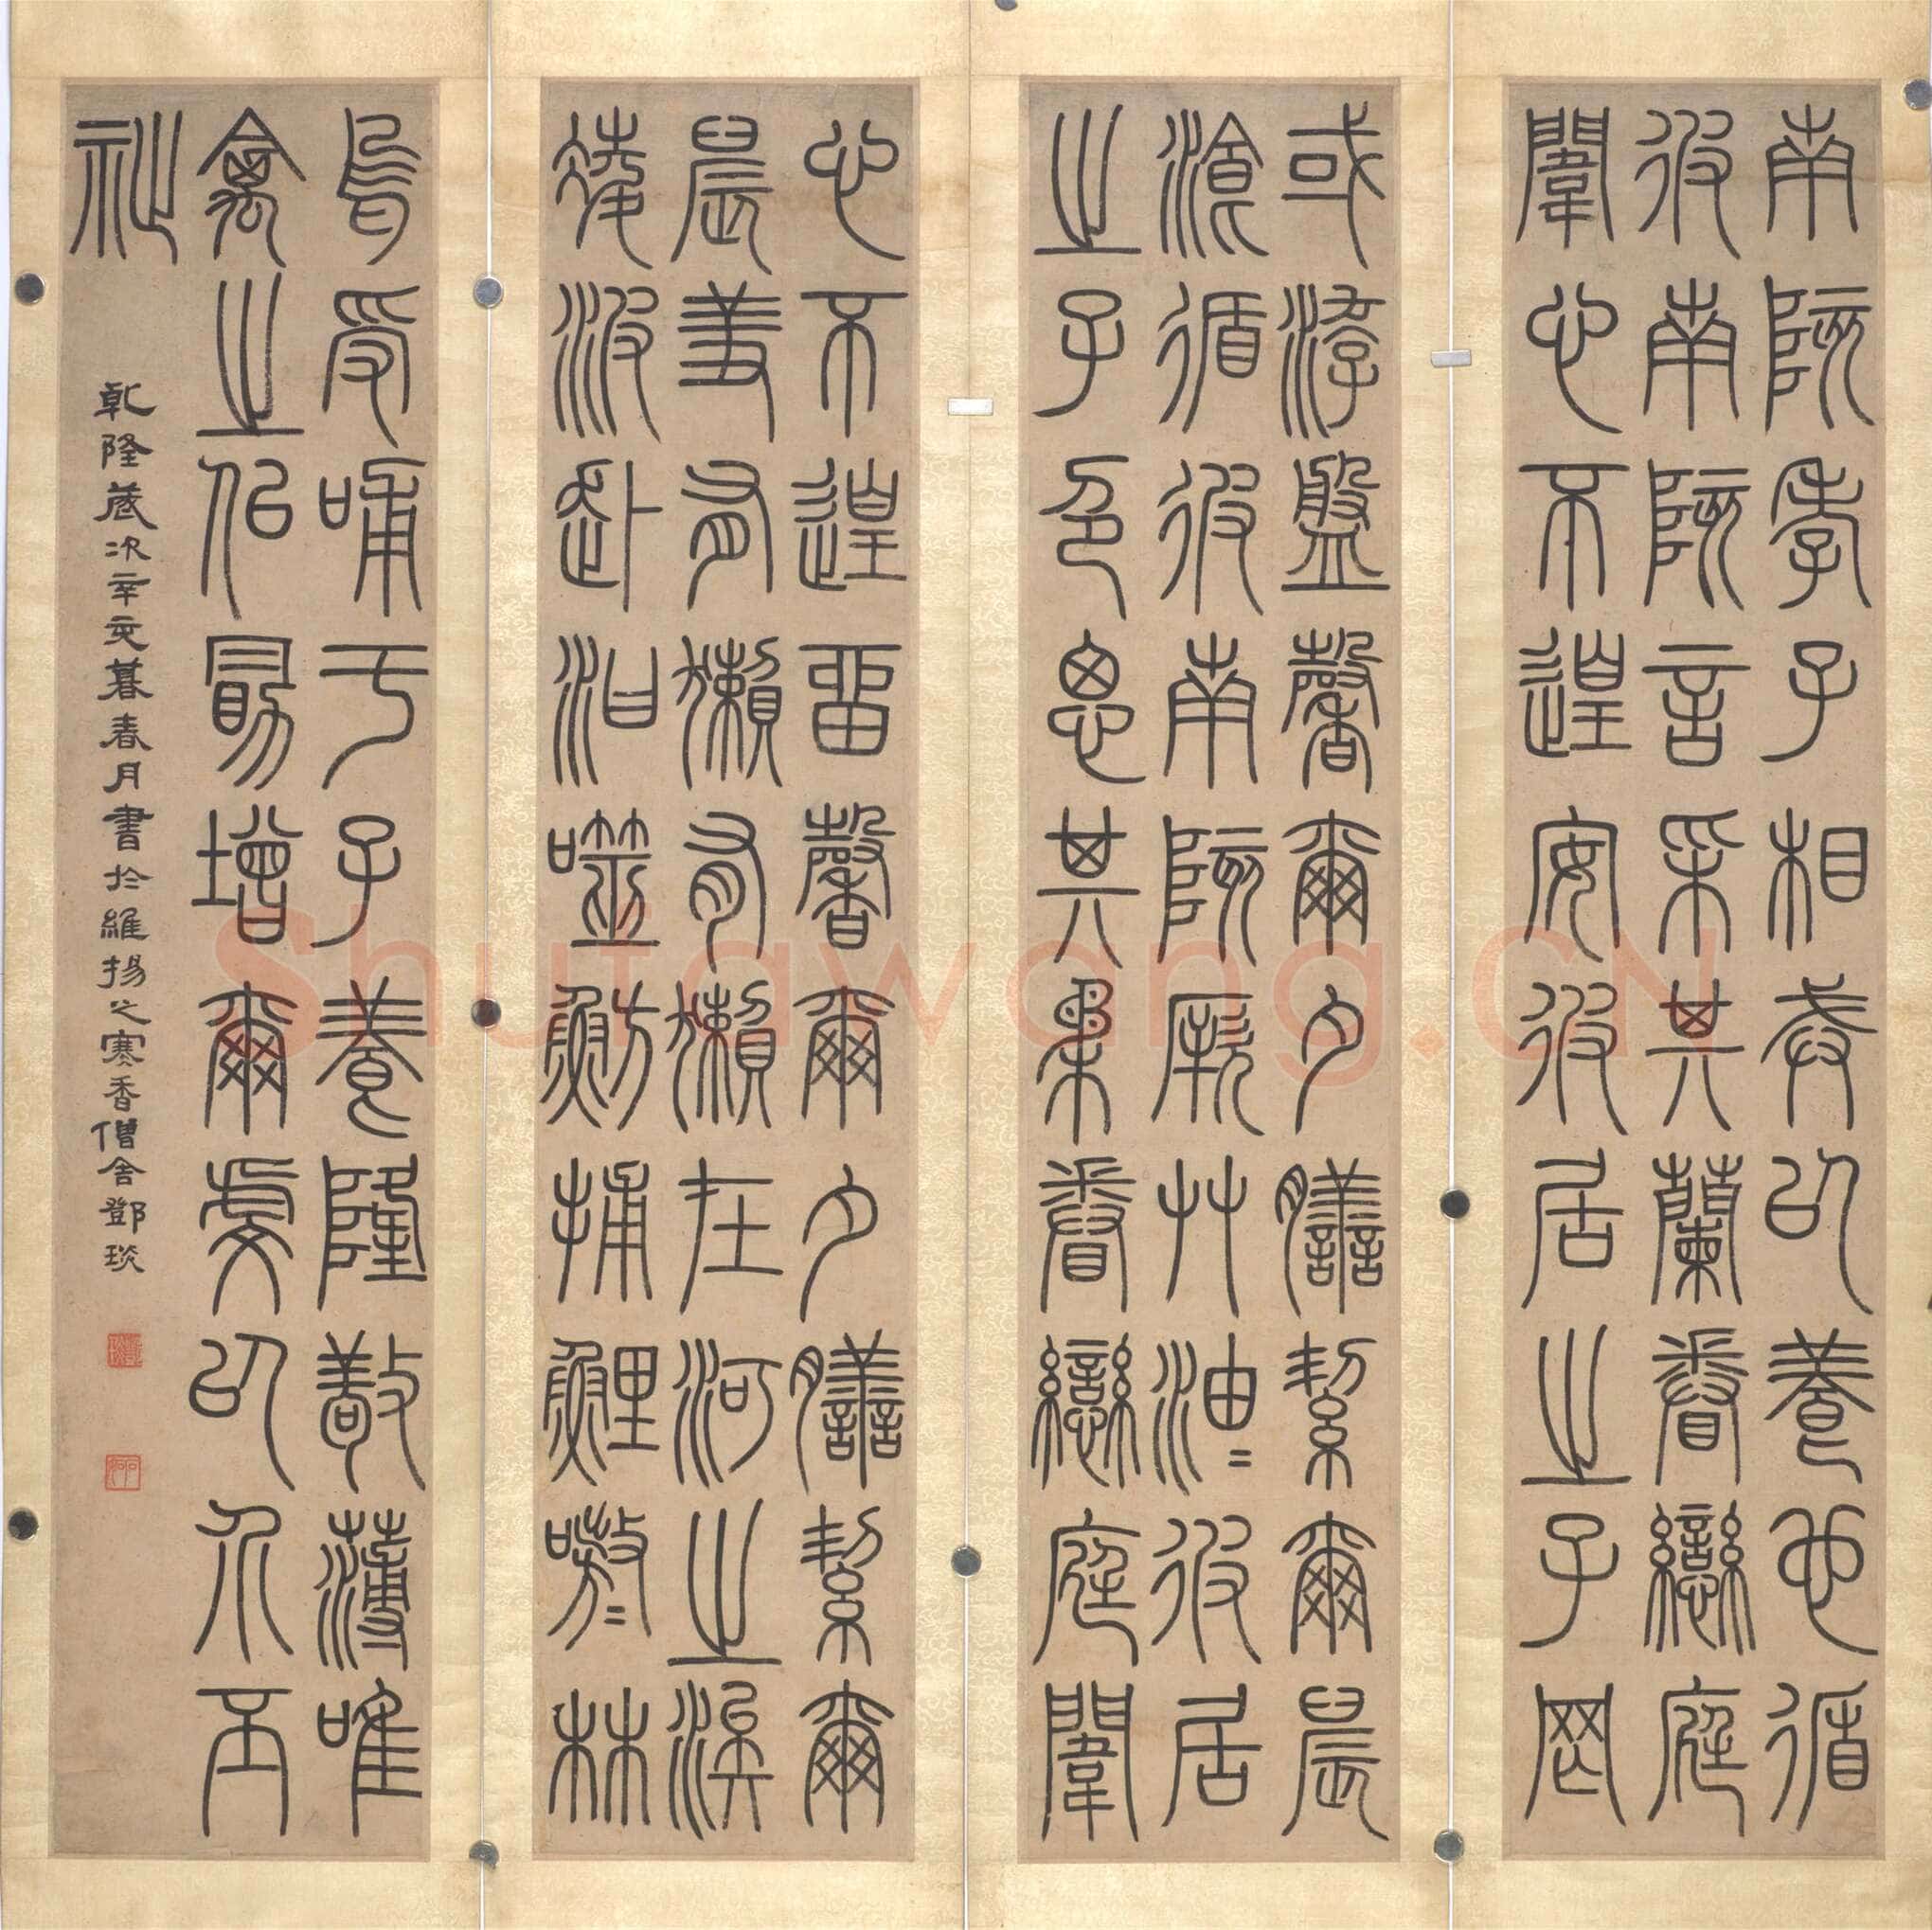 南陔孝子相戒以養也循
彼南陔言采其蘭眷戀庭
闈心不遑安彼居之子罔
或游盤馨爾夕膳絜爾晨
飡循彼南陔厥艸油〻彼居
之子色思其柔眷戀庭闈
心不遑留馨爾夕膳絜爾
晨羞有獺有獺在河之涘
淩波赴汨噬魴捕鯉嗷〻林
烏受哺于子養隆敬薄唯
禽之佀勖增爾虔以介丕
祉
乾隆歲次辛亥暮春月書於維揚之寒香僧舍鄧琰
鄧琰
石如
Shufawang.CN